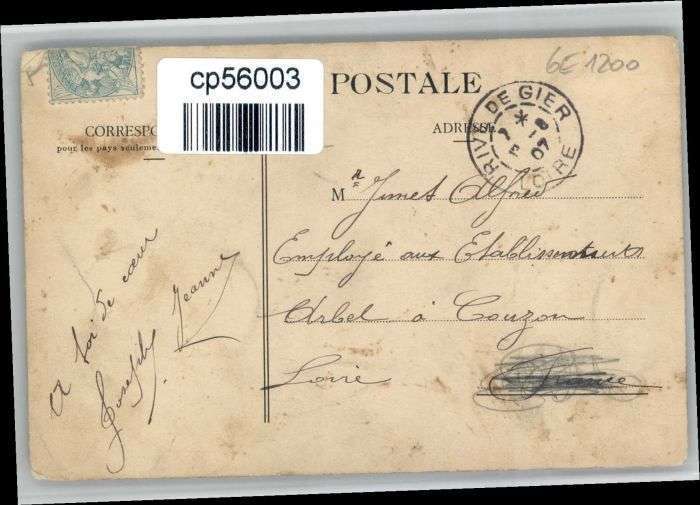 6E 1200
cp56003
POSTALE
CORRESPO
pour les pays seulement
ADRESSE
RIVE DE GIER
LOIRE
Mr Junet Alfred
Employé aux Etablissements
Arbel à Couzon
Loire France
A toi de cœur
Joseph Jeanne